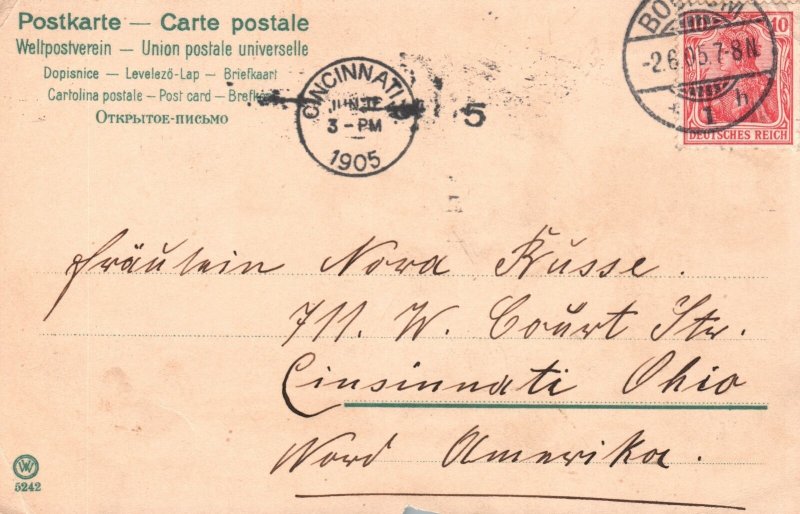 Postkarte — Carte postale
Weltpostverein — Union postale universelle
Dopisnice — Levelező-Lap — Briefkaart
Cartolina postale — Post card — Brefkort
Открытое-письмо
CINCINNATI
JUN
3 - PM
1905
5
BOCHUM
-2.6.05.7-8N.
* 1 h
10
DEUTSCHES REICH
Fräulein Nora Kusse.
711. W. Court Str.
Cinsinnati Ohio
Nord Amerika.
W
5242